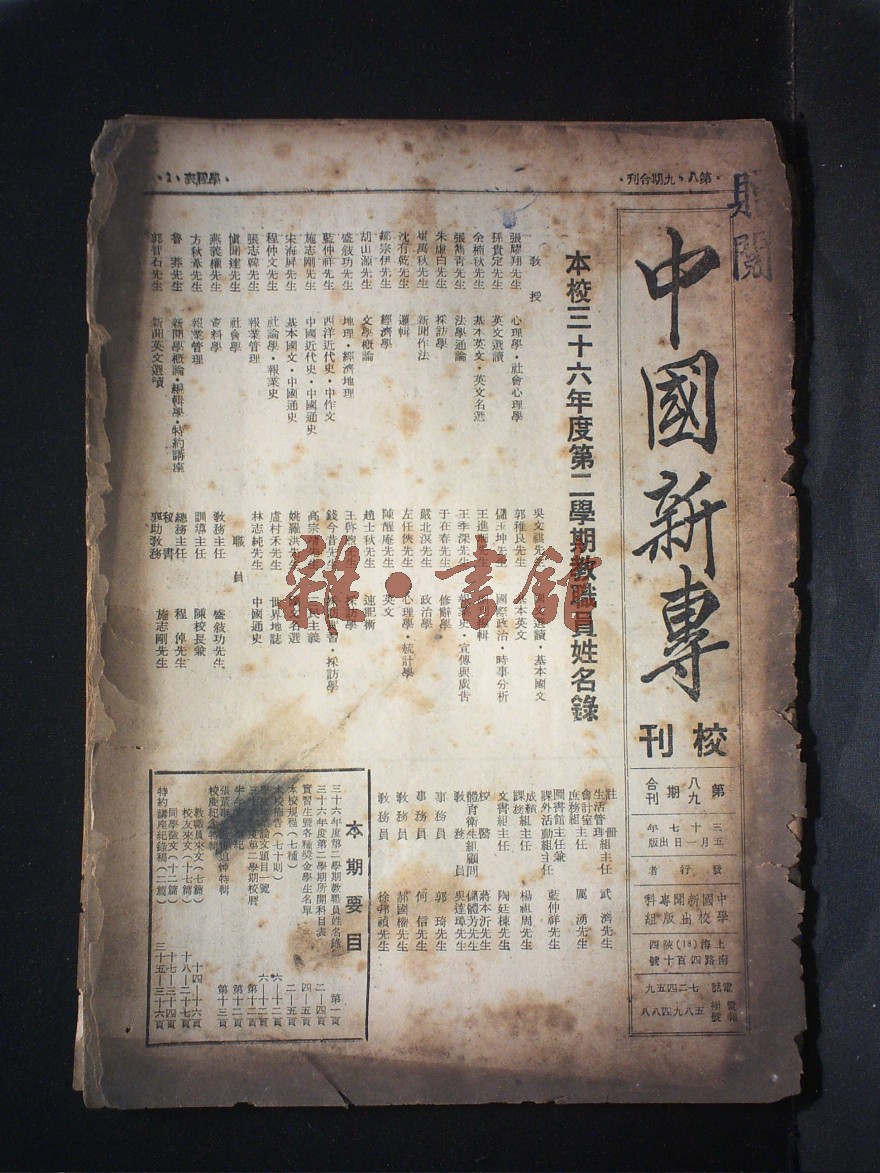 第八、九期合刊
贈閱
中國新專
校刊
第八九期合刊
三十七年五月一日出版
發行者
中國新聞專科學校出版組
上海(18)陝西南路四百十號
電話 七二四五九
電報掛號 五八九四八八
本校三十六年度第二學期教職員姓名錄
教授
張耀翔先生 心理學・社會心理學
孫貴定先生 英文選讀
余楠秋先生 基本英文・英文名選
法學通論
朱虛白先生 採訪學
新聞作法
沈有乾先生 邏輯
經濟學
胡山源先生 文學概論
盛敍功先生 地理・經濟地理
藍仲祥先生 西洋近代史・中作文
施志剛先生 中國近代史・中國通史
宋海屏先生 基本國文・中國通史
程仲文先生 社論學・報業史
報業管理
社會學
燕義權先生 資料學
方秋葦先生 報業管理
魯莽先生 新聞學概論・編輯學・特約講座
郭智石先生 新聞英文選讀
吳文祺先生 國文選讀・基本國文
郭稚良先生 基本英文
儲玉坤先生 國際政治・時事分析
王季深先生
宣傳與廣告
于在春先生 修辭學
嚴北溟先生 政治學
左任俠先生 心理學・統計學
陳醒庵先生 英文
趙士秋先生 速記術
採訪學
錢今昔先生
採訪學
三民主義
姚羅洪先生
盧村禾先生 世界地誌
林志純先生 中國通史
職員
教務主任 盛敍功先生
訓導主任 陳校長兼
總務主任 程倬先生
秘書
襄助教務 施志剛先生
註冊組主任 武濟先生
生活管理
會計室主任 厲湧先生
庶務組
圖書館主任兼
課外活動組主任 藍仲祥先生
成績組主任 楊祖周先生
課務
文書組主任 陶廷棟先生
校醫 蔣本沂先生
體育衛生組顧問 儲體芳先生
教務員 吳達璋先生
事務員 郭琦先生
事務員 何信先生
教務員 郝國權先生
教務員 徐邦禎先生
本期要目
三十六年度第二學期教職員姓名錄 第一頁
三十六年度第二學期所開科目表 二—四頁
實習生暨各種獎金學生名單 四—五頁
本校規程(七種) 二—五頁
本校佈告(七十則) 六—十二頁
論文題目一覽 六—十二頁
第二學期校曆 第十二頁
第十二頁
特輯 第十三頁
校慶紀念
教職員來文(七篇) 十四—十六頁
校友來文(十七篇) 十八—二十七頁
同學徵文(十二篇) 十七—三十四頁
特約講座紀錄稿(二篇) 三十五—三十六頁
雜・書館